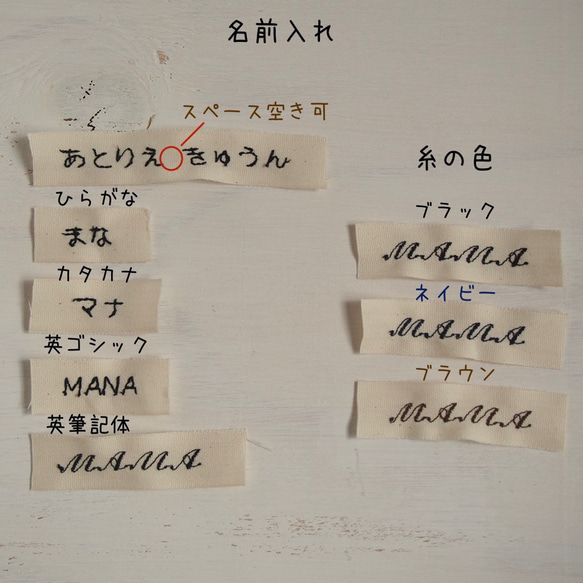 名前入れ
スペース空き可
あとりえ きゅうん
ひらがな
まな
カタカナ
マナ
英ゴシック
MANA
英筆記体
MAMA
糸の色
ブラック
MAMA
ネイビー
MAMA
ブラウン
MAMA